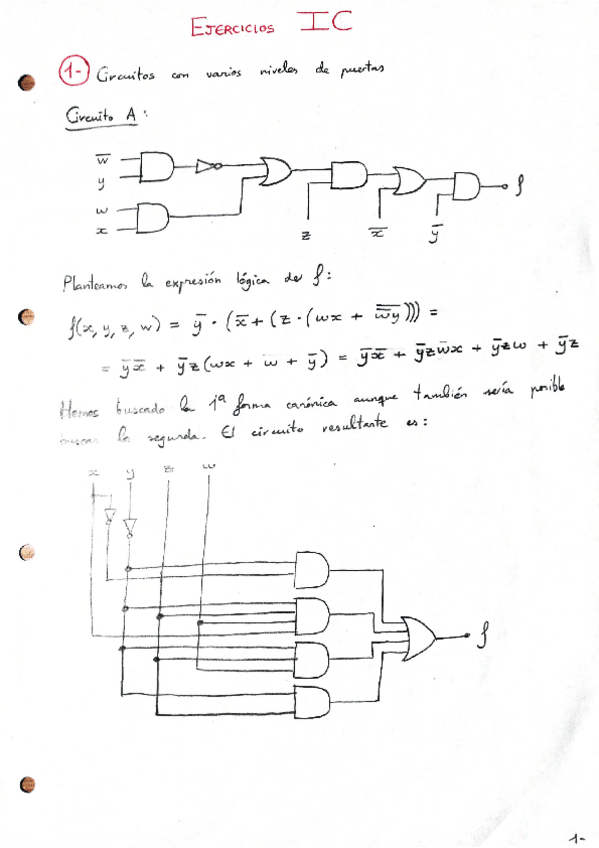 EJERCICIOS IC
1- Circuitos con varios niveles de puertas
Circuito A:
w̅
y
w
x
z
x̅
y̅
f
Planteamos la expresión lógica de f:
f(x, y, z, w) = y̅ · (x̅ + (z · (wx + \overline{w̅y}))) =
= y̅x̅ + y̅z(wx + w + y̅) = y̅x̅ + y̅zwx + y̅zw + y̅z
Hemos buscado la 1ª forma canónica aunque también sería posible
buscar la segunda. El circuito resultante es:
x y z w
f
1-